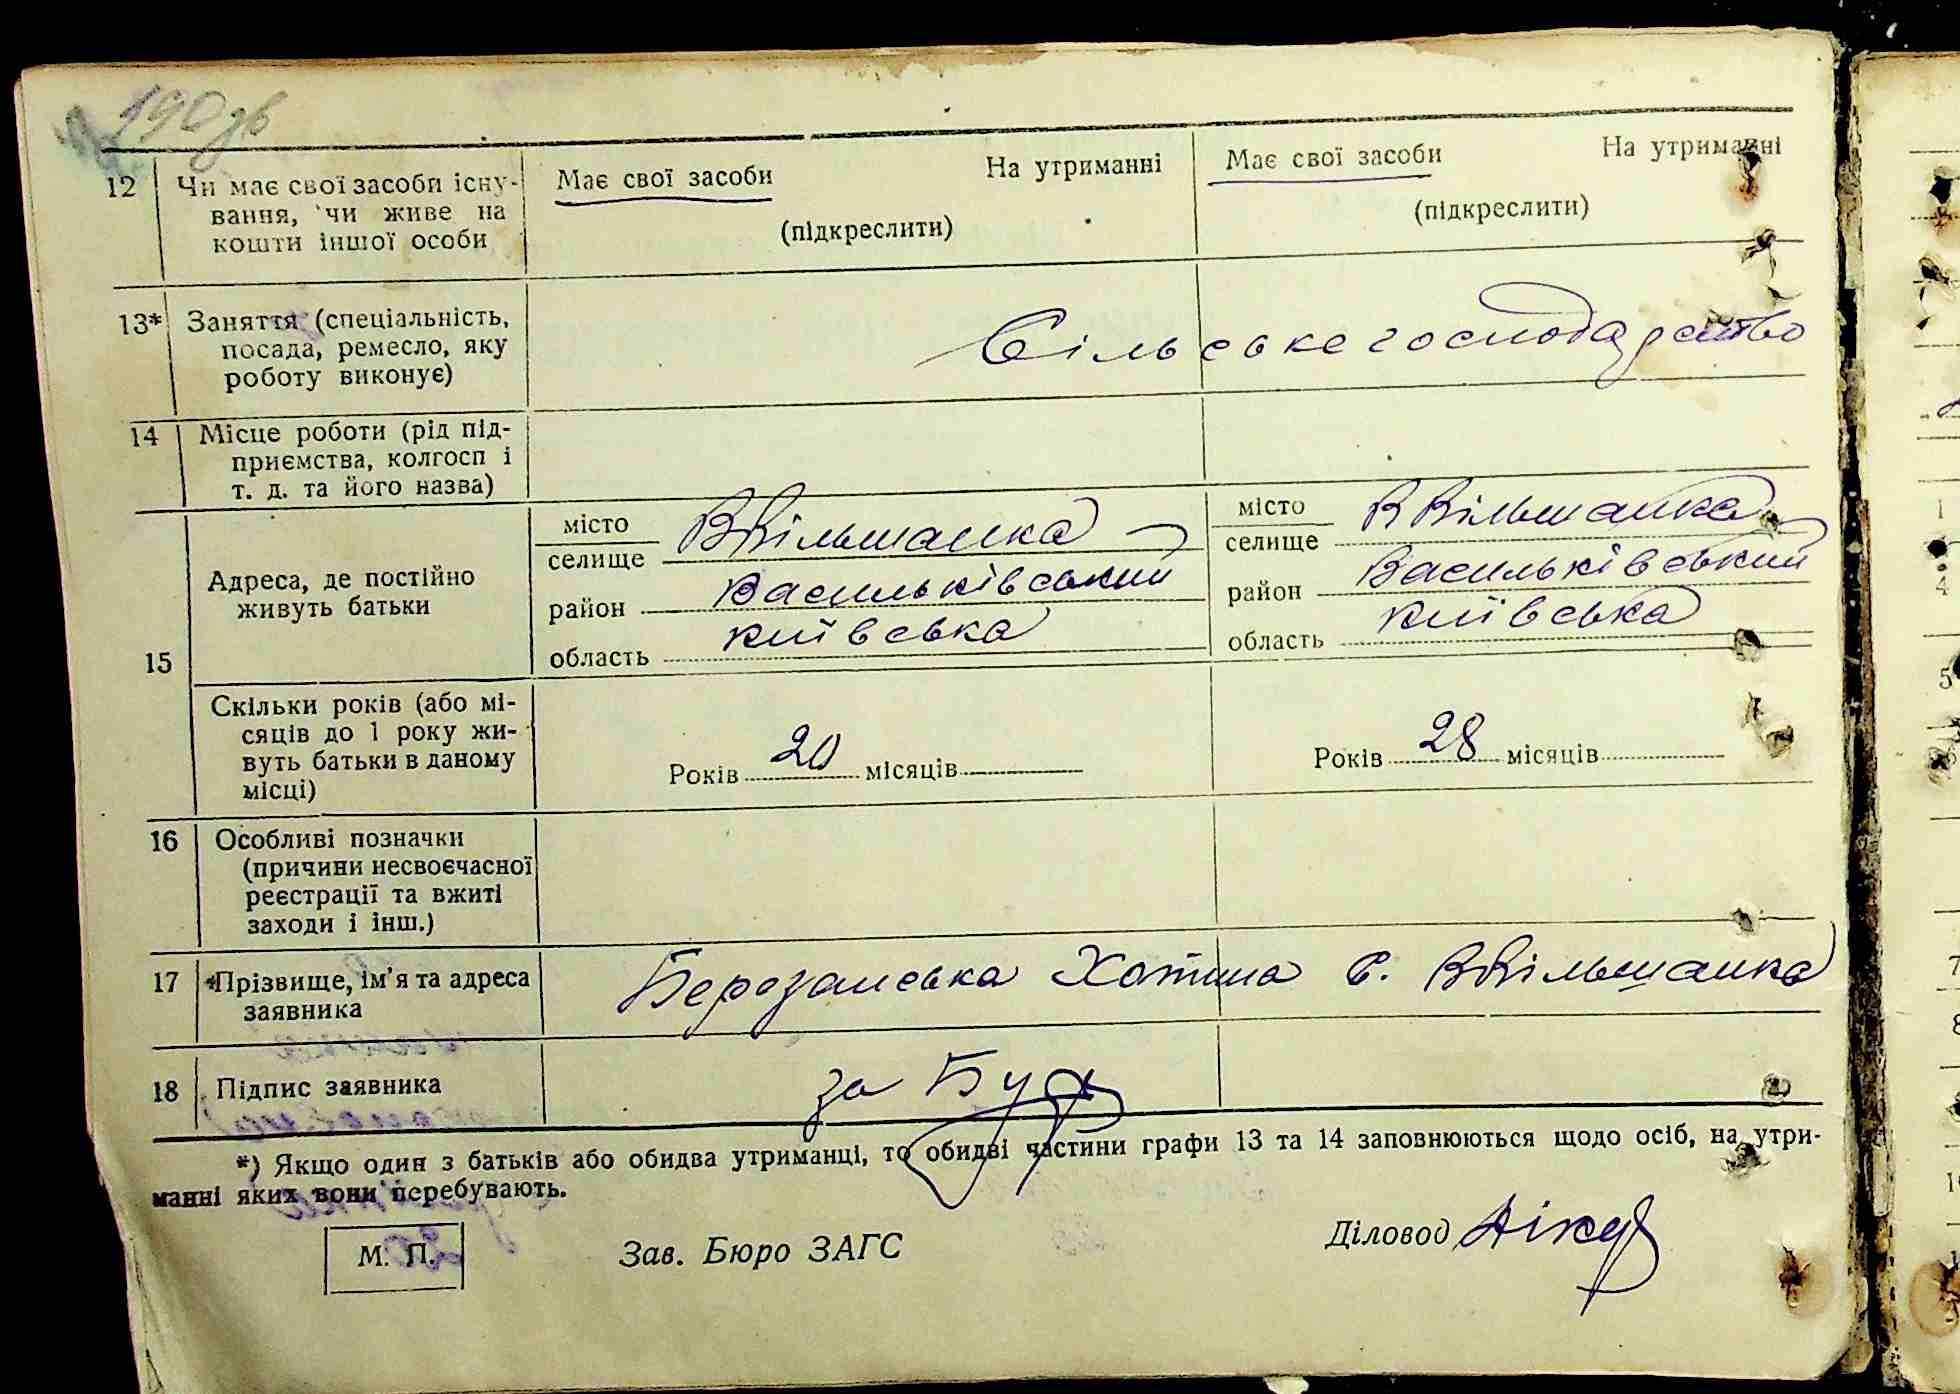 190 зв
12 Чи має свої засоби існу- Має свої засоби На утриманні Має свої засоби На утриманні
вання, чи живе на (підкреслити) (підкреслити)
кошти іншої особи
13* Заняття (спеціальність, Сільське господарство
посада, ремесло, яку
роботу виконує)
14 Місце роботи (рід під-
приємства, колгосп і
т. д. та його назва)
15 Адреса, де постійно
живуть батьки
місто
селище ВВільшанка
район Васильківський
область Київська
місто
селище ВВільшанка
район Васильківський
область Київська
Скільки років (або мі-
сяців до 1 року жи-
вуть батьки в даному
місці)
Років 20 місяців
Років 28 місяців
16 Особливі позначки
(причини несвоєчасної
реєстрації та вжиті
заходи і інш.)
17 Прізвище, ім'я та адреса Березанська Хотина с. ВВільшанка
заявника
18 Підпис заявника за
*) Якщо один з батьків або обидва утриманці, то обидві частини графи 13 та 14 заповнюються щодо осіб, на утри-
манні яких вони перебувають.
М. П. Зав. Бюро ЗАГС Діловод